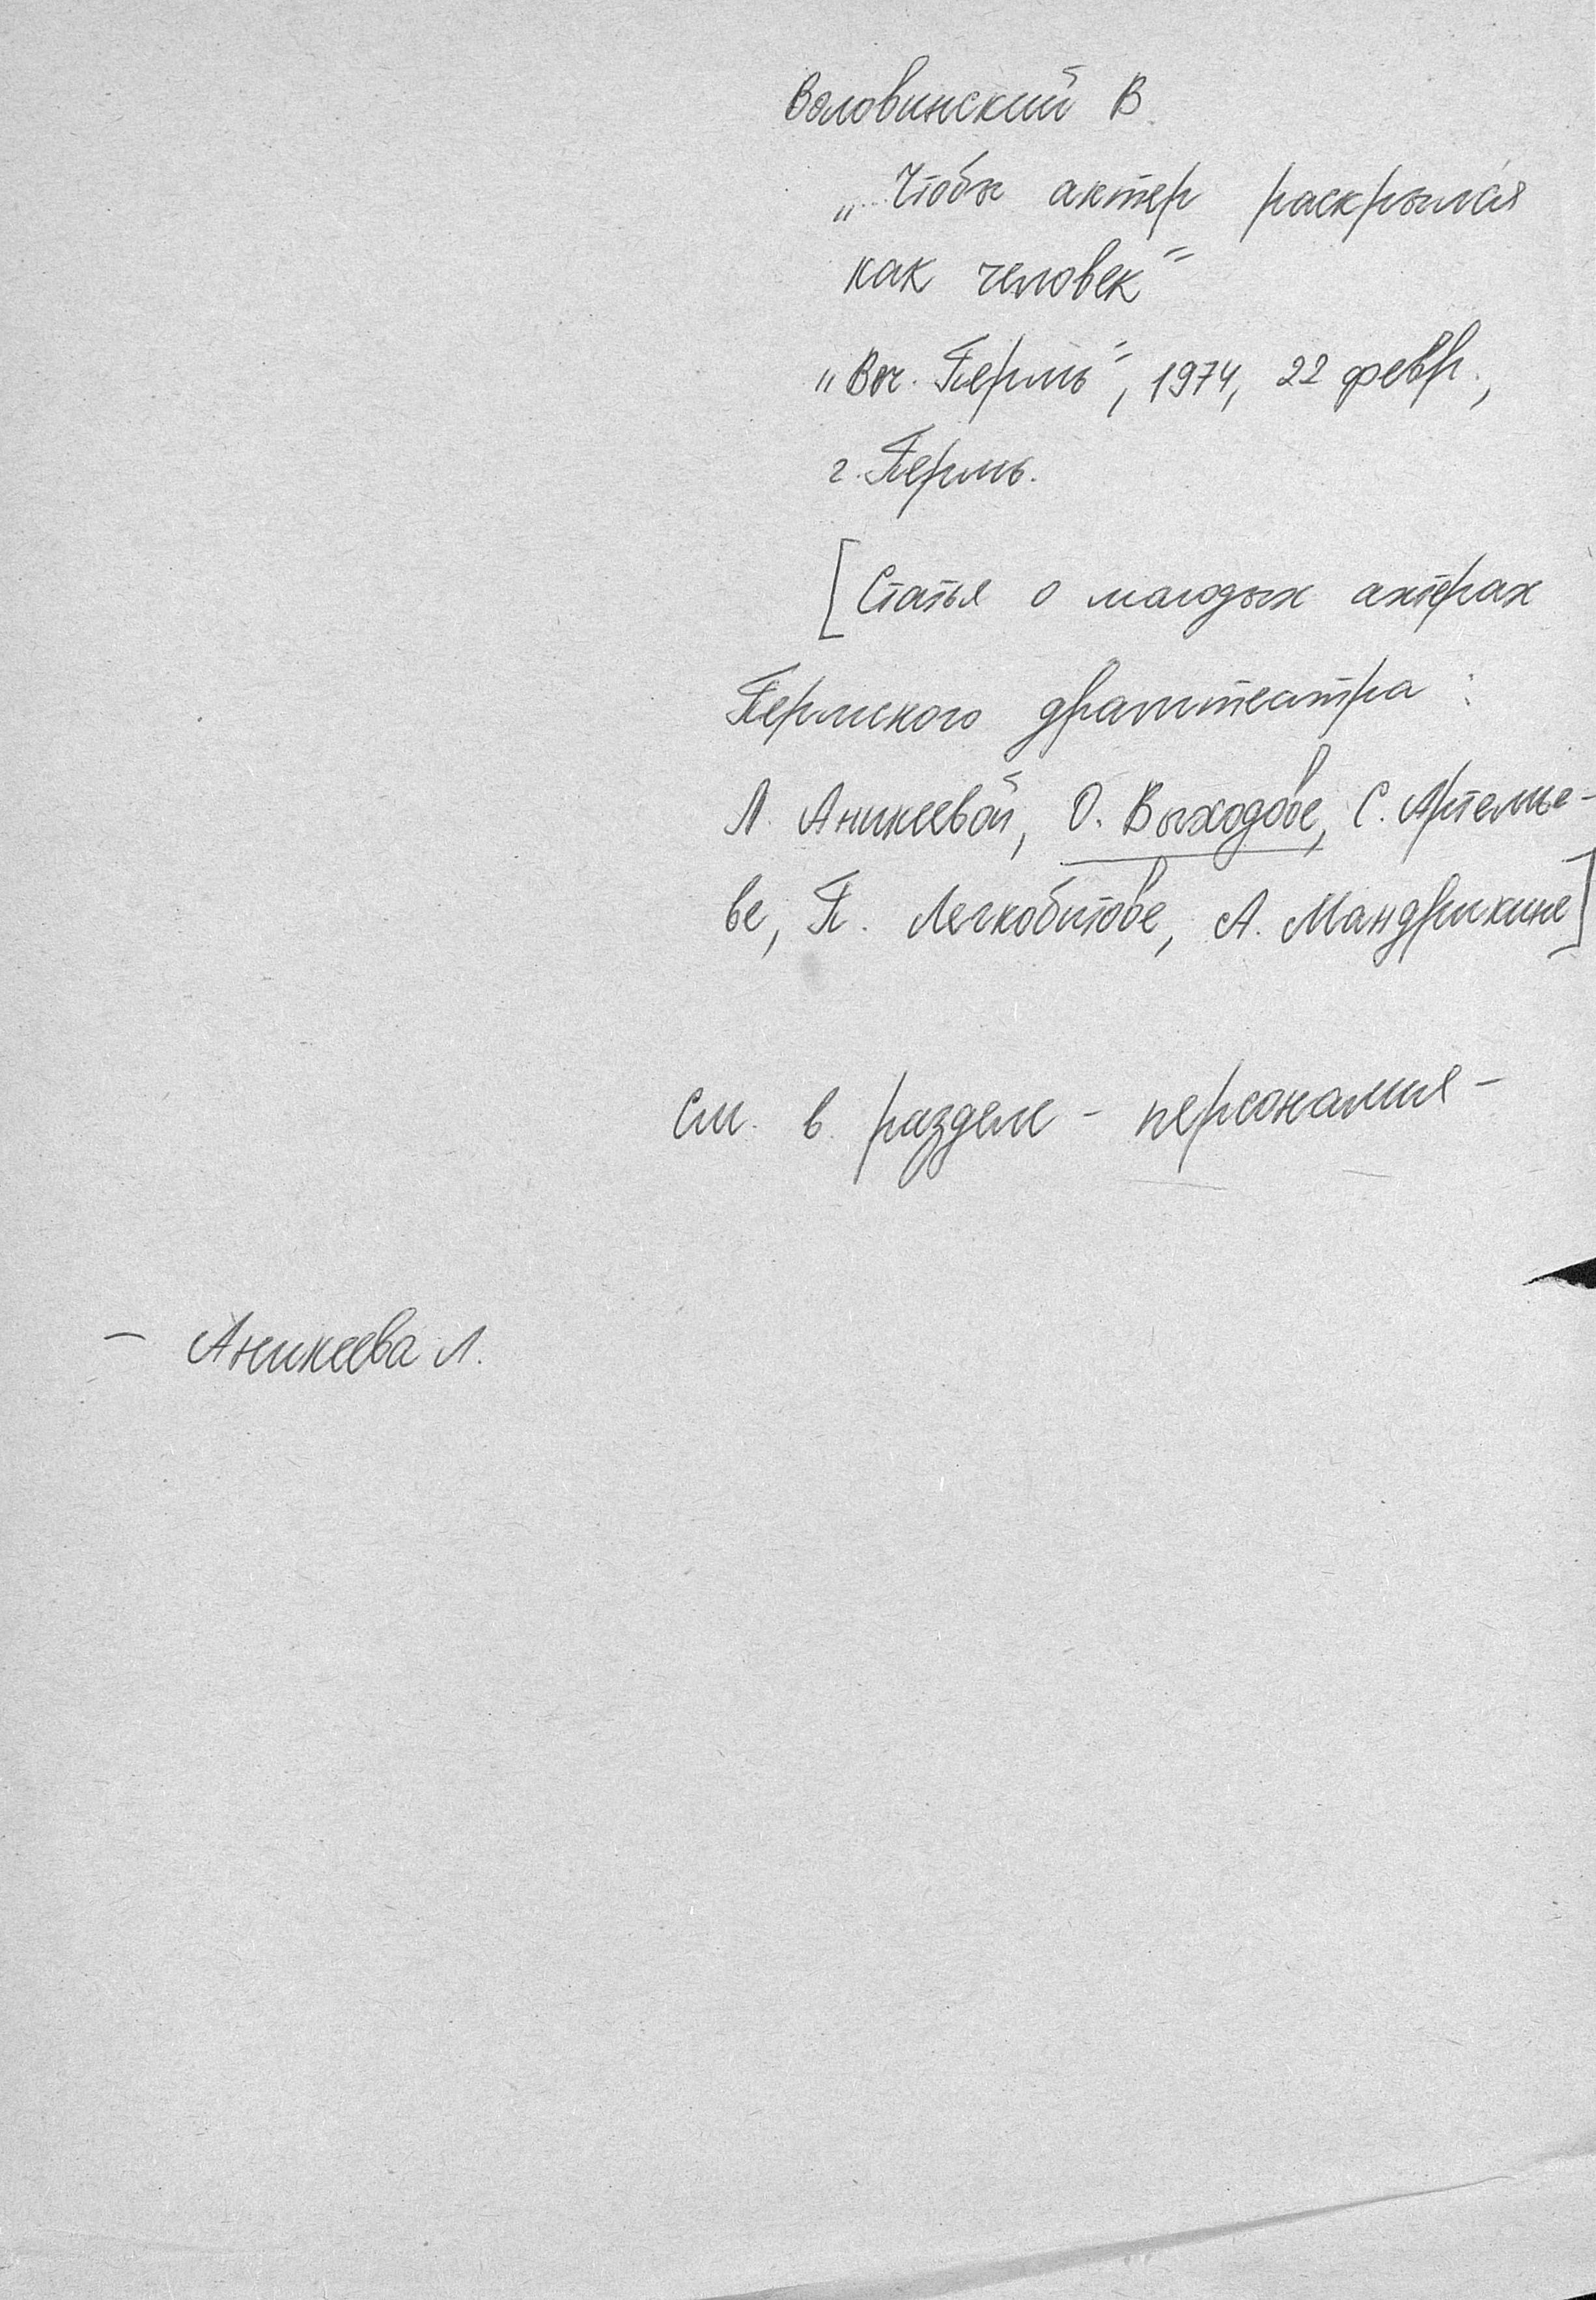 Воловинский В.
„Чтобы актер раскрылся
как человек"
„Веч. Пермь", 1974, 22 февр.,
г. Пермь.
[Статья о молодых актерах
Пермского драмтеатра:
Л. Аникеевой, О. Выходове, С. Артемье-
ве, П. Легкобитове, А. Мандрыкине]
См. в разделе - персоналия -
- Аникеева Л.